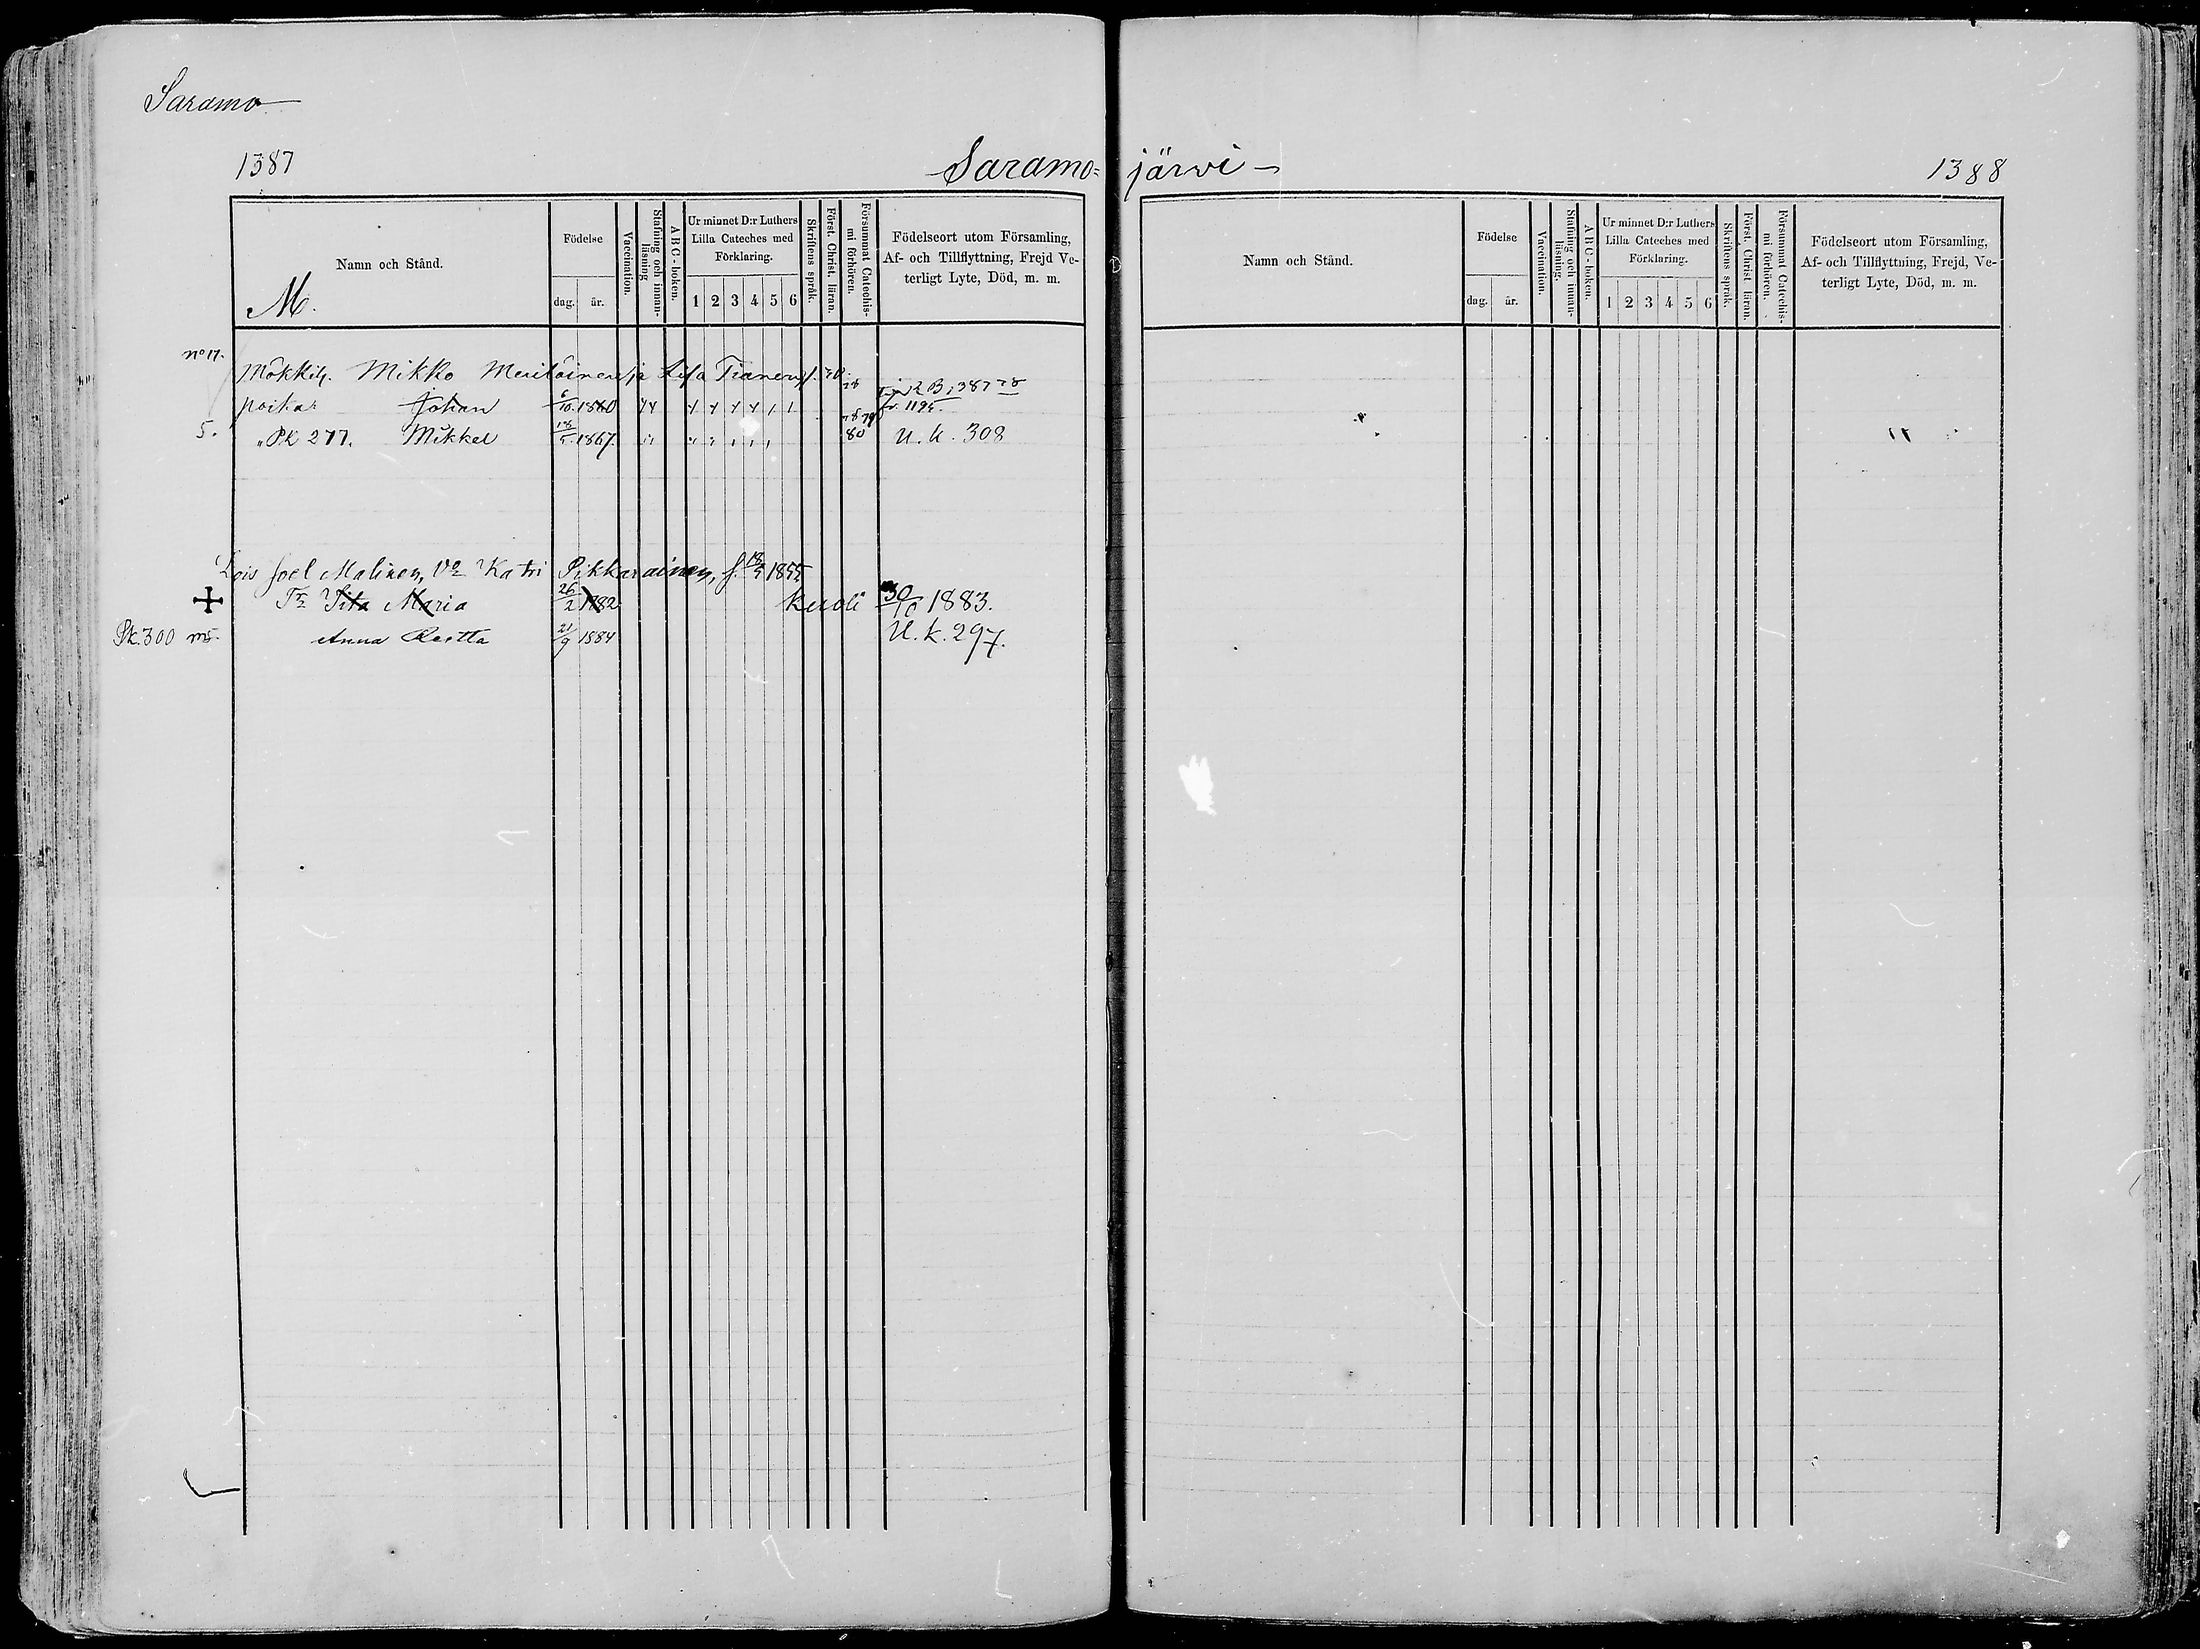 Saramo
1387
Saramo=
Namn och Stånd.
M.
Födelse
dag.
år.
Vaccination.
Stafning och innan-
läsning
A B C - boken.
Ur minnet D:r Luthers
Lilla Cateches med
Förklaring.
1 2 3 4 5 6
Skriftens språk.
Först. Christ. läran.
Försummat Catechis-
mi förhören.
Födelseort utom Församling,
Af- och Tillflyttning, Frejd Ve-
terligt Lyte, Död, m. m.
No 17.
Mikko Meriläinen ja
poikar Johan 6/10 1860
5. PK 277. Mikkel 18/5 1867. 80 U. k. 308
Lois Joel Malinen, Vo Katri Pikkarainen, f. 1855
Tr Tita Maria 26/2 1882 kuoli 30/10 1883.
Pk. 300 Anna Reetta 21/9 1884 U. k. 297.
järvi
1388
Namn och Stånd.
Födelse
dag.
år.
Vaccination.
Stafning och innan-
läsning.
A B C - boken.
Ur minnet D:r Luthers
Lilla Cateches med
Förklaring.
1 2 3 4 5 6
Skriftens språk.
Först. Christ läran.
Försummat Catechis-
mi förhören.
Födelseort utom Församling,
Af- och Tillflyttning, Frejd, Ve-
terligt Lyte, Död, m. m.